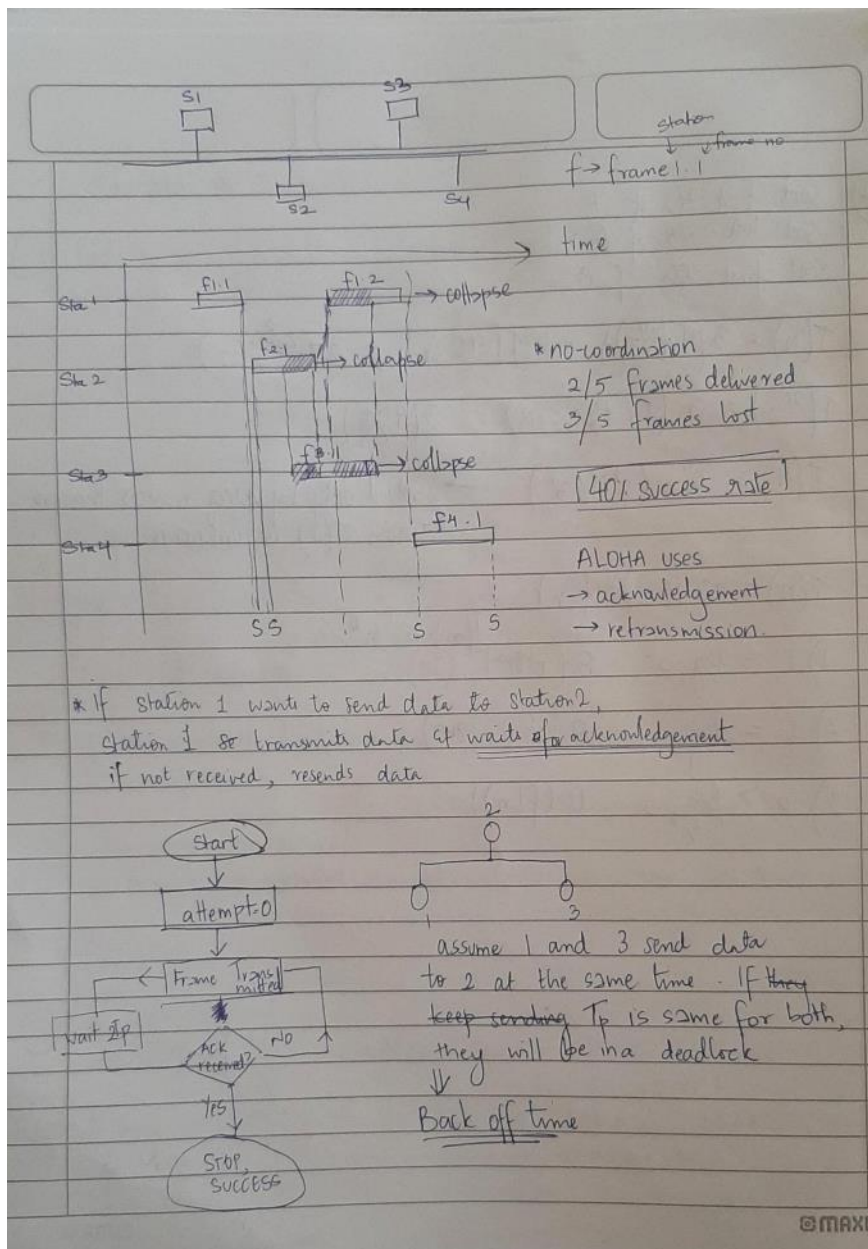 S1
S3
station
frame no
f → frame 1.1
S2
S4
time
f1.1
f1.2
Sta 1
→ collapse
f2.1
→ collapse
Sta 2
* no-coordination
2/5 frames delivered
3/5 frames lost
f3.1
→ collapse
Sta 3
40% success rate
f4.1
Sta 4
ALOHA uses
→ acknowledgement
S S ! S S
→ retransmission.
* If station 1 wants to send data to station 2,
station 1 transmits data & waits for acknowledgement
if not received, resends data
Start
2
attempt=0
1
3
Frame Trans
mitted
wait 2Tp
ACK
received?
NO
Yes
STOP,
SUCCESS
assume 1 and 3 send data
to 2 at the same time. If they
keep sending Tp is same for both,
they will be in a deadlock
Back off time
MAXI